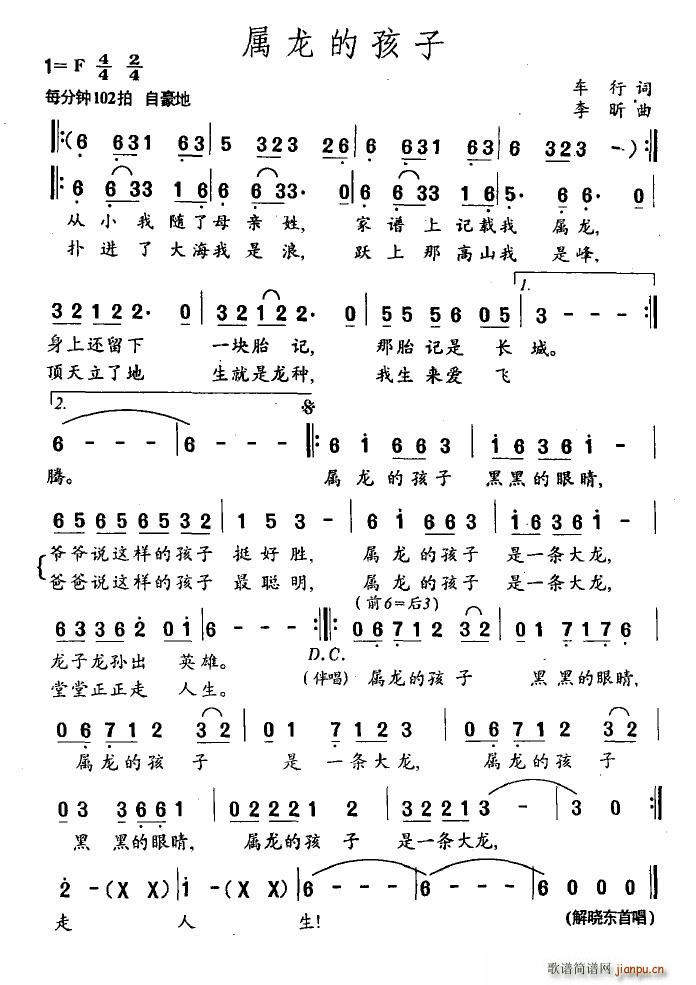 属龙的孩子
1=F 4/4 2/4
车行词
每分钟102拍 自豪地
李昕曲
‖:(6 631 63 | 5 323 26 | 6 631 63 | 6 323 - ):‖
‖: 6 633 16 | 6 633· 0 | 6 633 316 | 5· 6 6· 0
从小我随了母亲姓, 家谱上记载我 属龙,
扑进了大海我是浪, 跃上那高山我 是峰,
1.
32122· 0 | 32122· 0 | 55 56 05 | 3 - - - :‖
身上还留下 一块胎记, 那胎记是长城。
顶天立了地 生就是龙种, 我生来爱飞
2.
6 - - - | 6 - - - ‖: 6 1 663 | 16361 -
腾。 属龙的孩子 黑黑的眼睛,
65656532 | 153 - | 61 663 | 16361 -
爷爷说这样的孩子 挺好胜, 属龙的孩子 是一条大龙,
爸爸说这样的孩子 最聪明, 属龙的孩子 是一条大龙,
(前6=后3)
63362 01 | 6 - - :‖: 06712 32 | 01 7176
龙子龙孙出 英雄。 D.C. (伴唱) 属龙的孩子 黑黑的眼睛,
堂堂正正走 人生。
06712 32 | 01 7123 | 06712 32
属龙的孩子 是一条大龙, 属龙的孩子
03 3661 | 02221 2 | 322213 - - | 3 0 :‖
黑黑的眼睛, 属龙的孩子 是一条大龙,
2 - (X X) | 1 - (X X) | 6 - - - | 6 - - - | 6 0 0 0 ‖
走 人 生!
(解晓东首唱)
歌谱简谱网
jianpu.cn